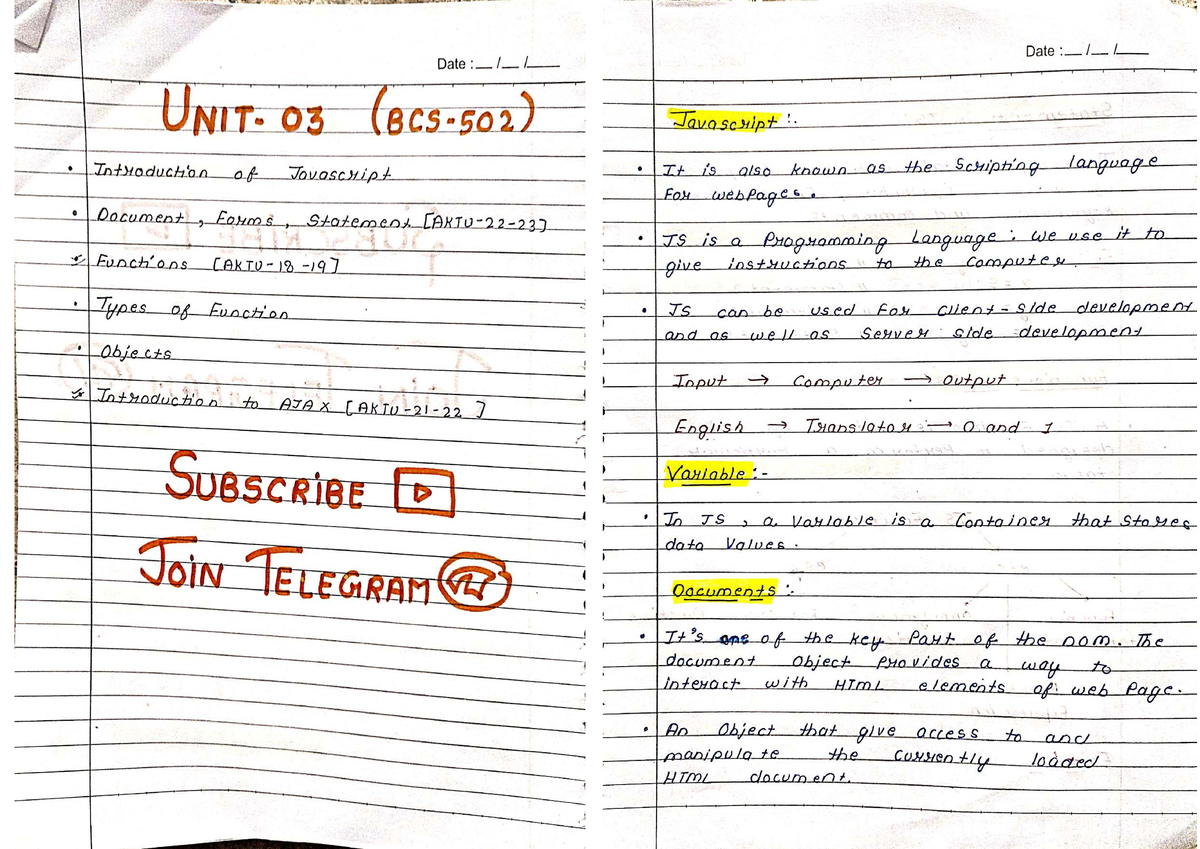 Date : __ / __ / ____
UNIT- 03 (BCS-502)
• Introduction of Javascript
• Document, Forms, Statement [AKTU-22-23]
Functions [AKTU-18-19]
• Types of Function
• Objects
Introduction to AJAX [AKTU-21-22]
SUBSCRIBE
JOIN TELEGRAM
Date : __ / __ / ____
Javascript :-
• It is also known as the Scripting language
For webpages.
• JS is a Programming Language: we use it to
give instructions to the computer
• JS can be used For client-side development
and as well as Server side development
Input → Computer → Output
English → Translator → 0 and 1
Variable :-
• In JS, a Variable is a Container that stores
data Values.
Documents :-
• It's one of the key Part of the DOM. The
document Object Provides a way to
interact with HTML elements of web Page.
• An Object that give access to and
manipulate the currently loaded
HTML document.